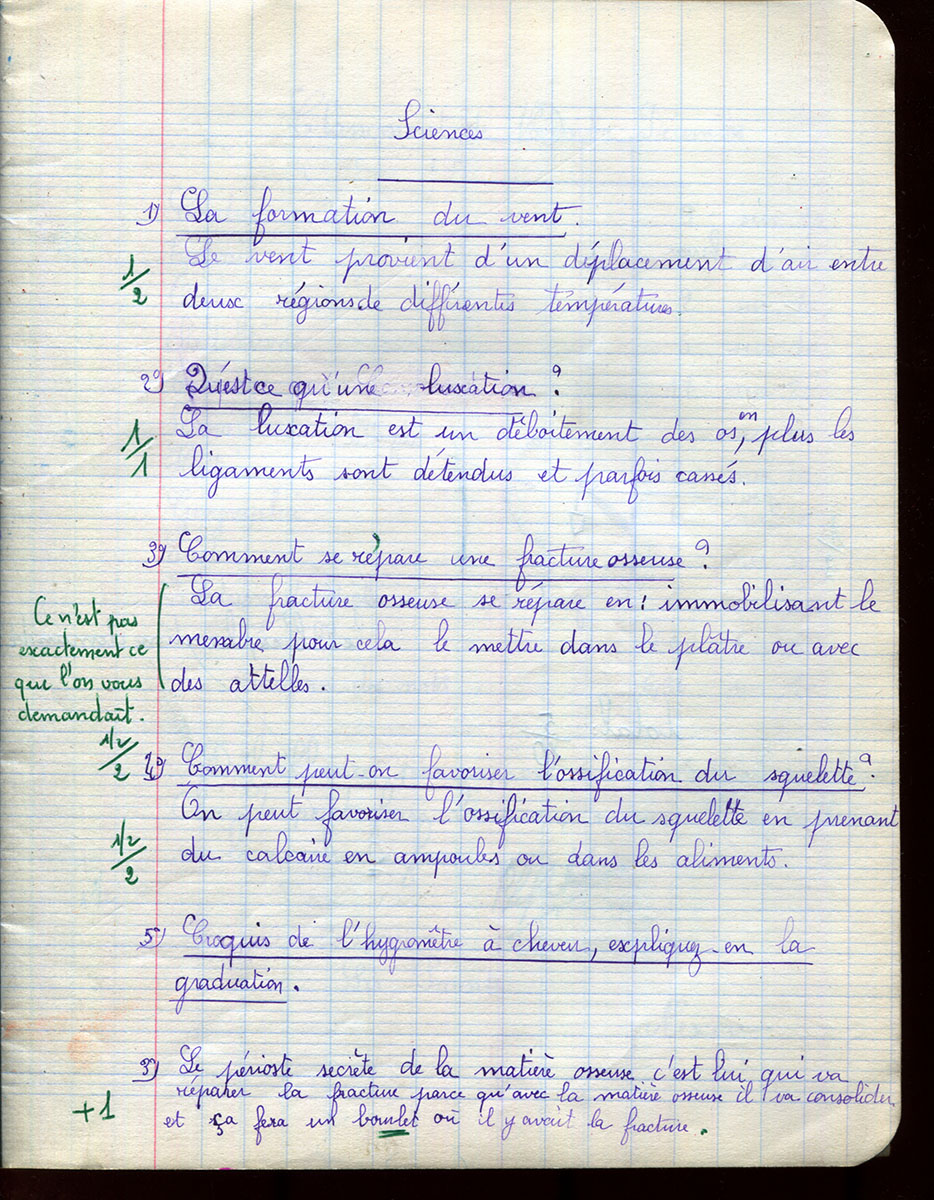 Sciences
1) La formation du vent.
1/2
Le vent provient d'un déplacement d'air entre
deux régions de différents températures.
2) Qu'est ce qu'une luxation ?
1/1
La luxation est un déboitement des os, en plus les
ligaments sont détendus et parfois cassés.
3) Comment se répare une fracture osseuse ?
La fracture osseuse se répare en : immobilisant le
membre, pour cela le mettre dans le plâtre ou avec
des attelles.
Ce n'est pas
exactement ce
que l'on vous
demandait.
1/2/2
4) Comment peut-on favoriser l'ossification du squelette ?
On peut favoriser l'ossification du squelette en prenant
du calcaire en ampoules ou dans les aliments.
1/2/2
5) Croquis de l'hygromètre à cheveu, expliquez-en la
graduation.
3) Le périoste secrète de la matière osseuse c'est lui qui va
réparer la fracture parce qu'avec la matière osseuse il va consolider
et ça fera un boulet où il y avait la fracture.
+1